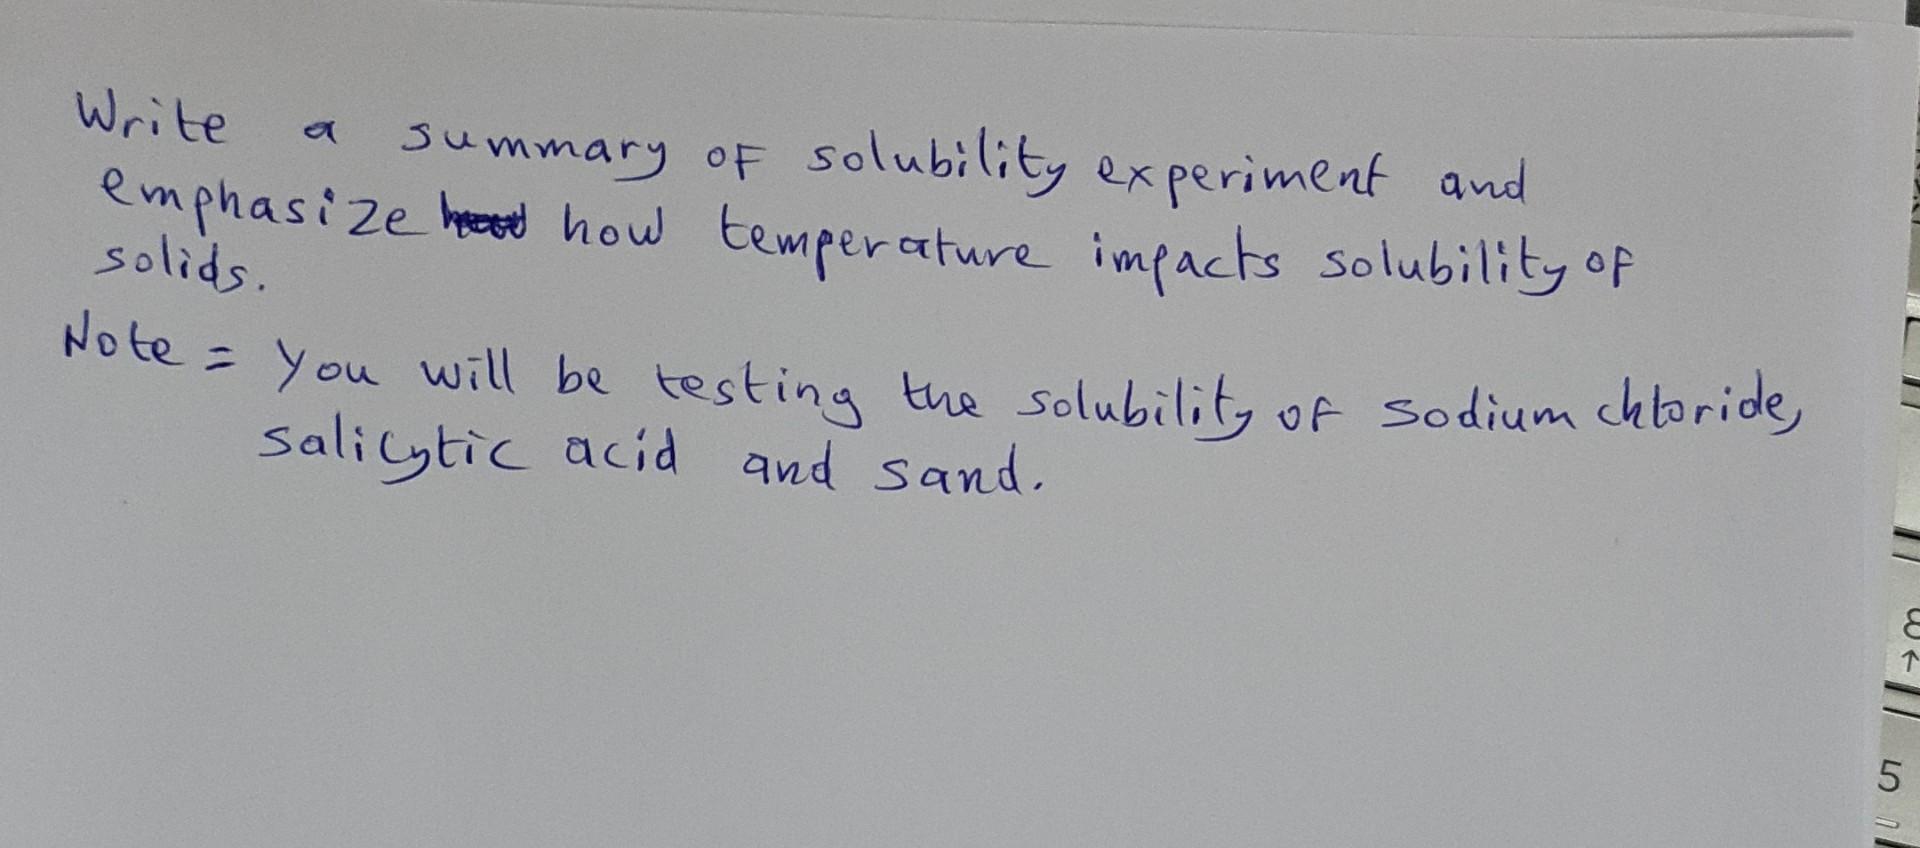 Write a summary of solubility experiment and
emphasize how temperature impacts solubility of
solids.
Note = You will be testing the solubility of sodium chloride,
salicytic acid and sand.
8
↑
5